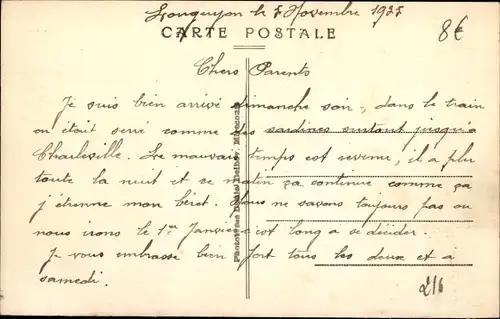 Longuyon le 5 Novembre 1935
8€
CARTE POSTALE
Chers Parents
Je suis bien arrivé dimanche soir, dans le train
on était serré comme des sardines surtout jusqu'à
Charleville. Le mauvais temps est revenu, il a plu
toute la nuit et ce matin ça continue comme ça
j'étrenne mon béret. Nous ne savons toujours pas où
nous irons le 1er Janvier c'est long a se décider.
Je vous embrasse bien fort tous les deux et a
samedi.
216